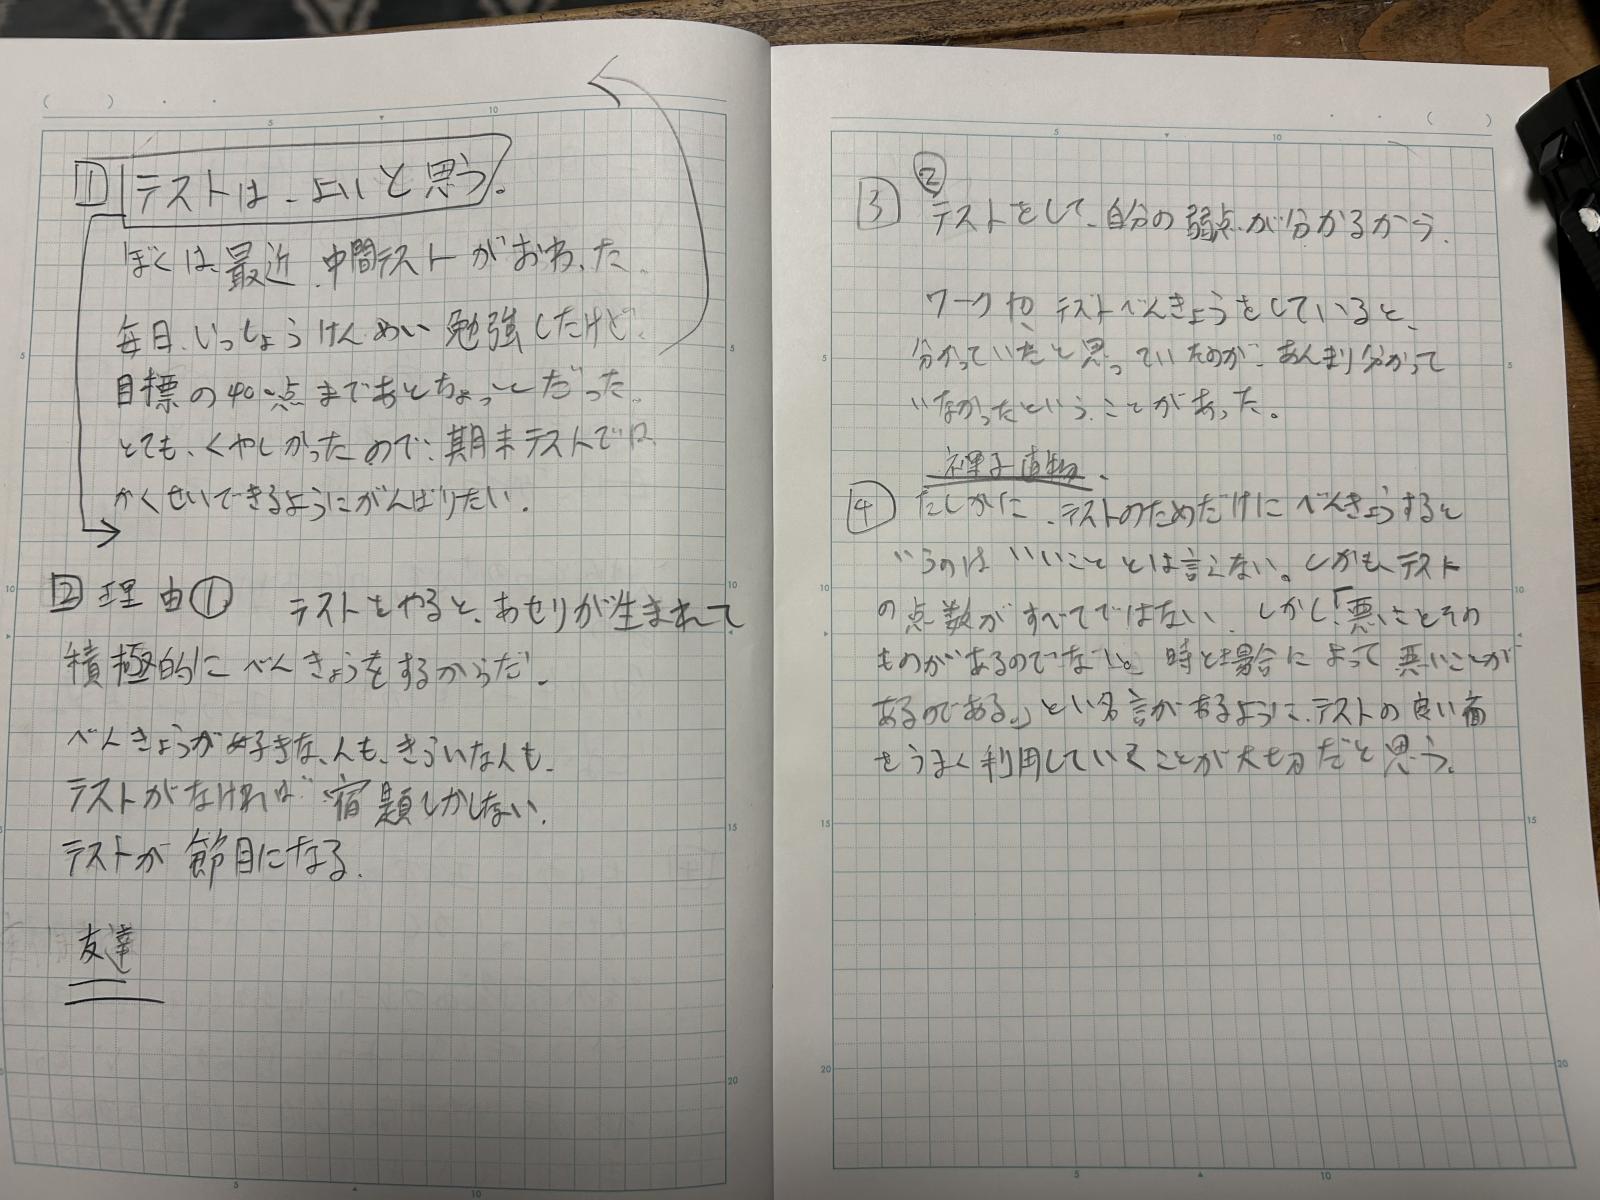 1 テストは、よいと思う。
ぼくは、最近、中間テストがおわった。
毎日、いっしょうけんめい勉強したけど、
目標の400点まであとちょっとだった。
とても、くやしかったので、期末テストでは
かくせいできるようにがんばりたい。
2 理由① テストをやると、あせりが生まれて
積極的にべんきょうをするからだ。
べんきょうが好きな人も、きらいな人も、
テストがなければ 宿題しかしない。
テストが節目になる。
友達
②
3 テストをして、自分の弱点が分かるから。
ワークや、テストべんきょうをしていると、
分かっていたと思っていたのが、あんまり分かって
いなかったということがあった。
4 たしかに、テストのためだけにべんきょうすると
いうのはいいこととは言えない。しかも、テスト
の点数がすべてではない。しかし、「悪いことその
ものがあるのでない。時と場合によって悪いことが
あるのである。」という名言があるように、テストの良い面
をうまく利用していくことが大切だと思う。